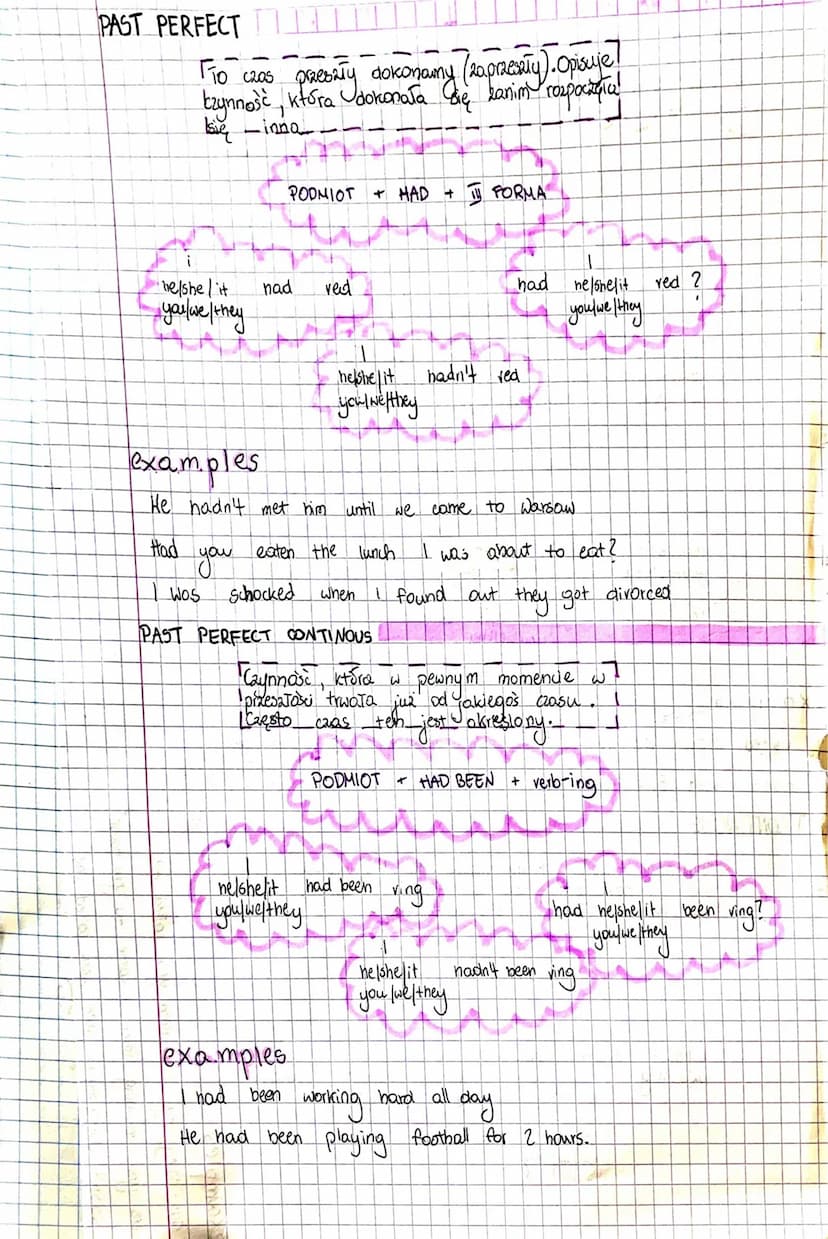 PAST PERFECT
To czas przeszły dokonamy (zaprzeszły). Opisuje
czynność, która dokonała się zanim rozpoczęła
się inna
PODMIOT + HAD + III FORMA
i
he/she/it had ved
you/we/they
I
had he/she/it ved ?
you/we/they
I
he/she/it hadn't ved
you/we/they
examples
He hadn't met him until we came to Warsaw
Had you eaten the lunch I was about to eat?
I was schocked when I found out they got divorced
PAST PERFECT CONTINOUS
Czynność, która w pewnym momencie w
przeszłości trwała już od jakiegoś czasu.
Często czas ten jest określony.
PODMIOT + HAD BEEN + verb-ing
I
he/she/it had been ving
you/we/they
I
had he/she/it been ving?
you/we/they
I
he/she/it hadn't been ving
you/we/they
examples
I had been working hard all day
He had been playing football for 2 hours.